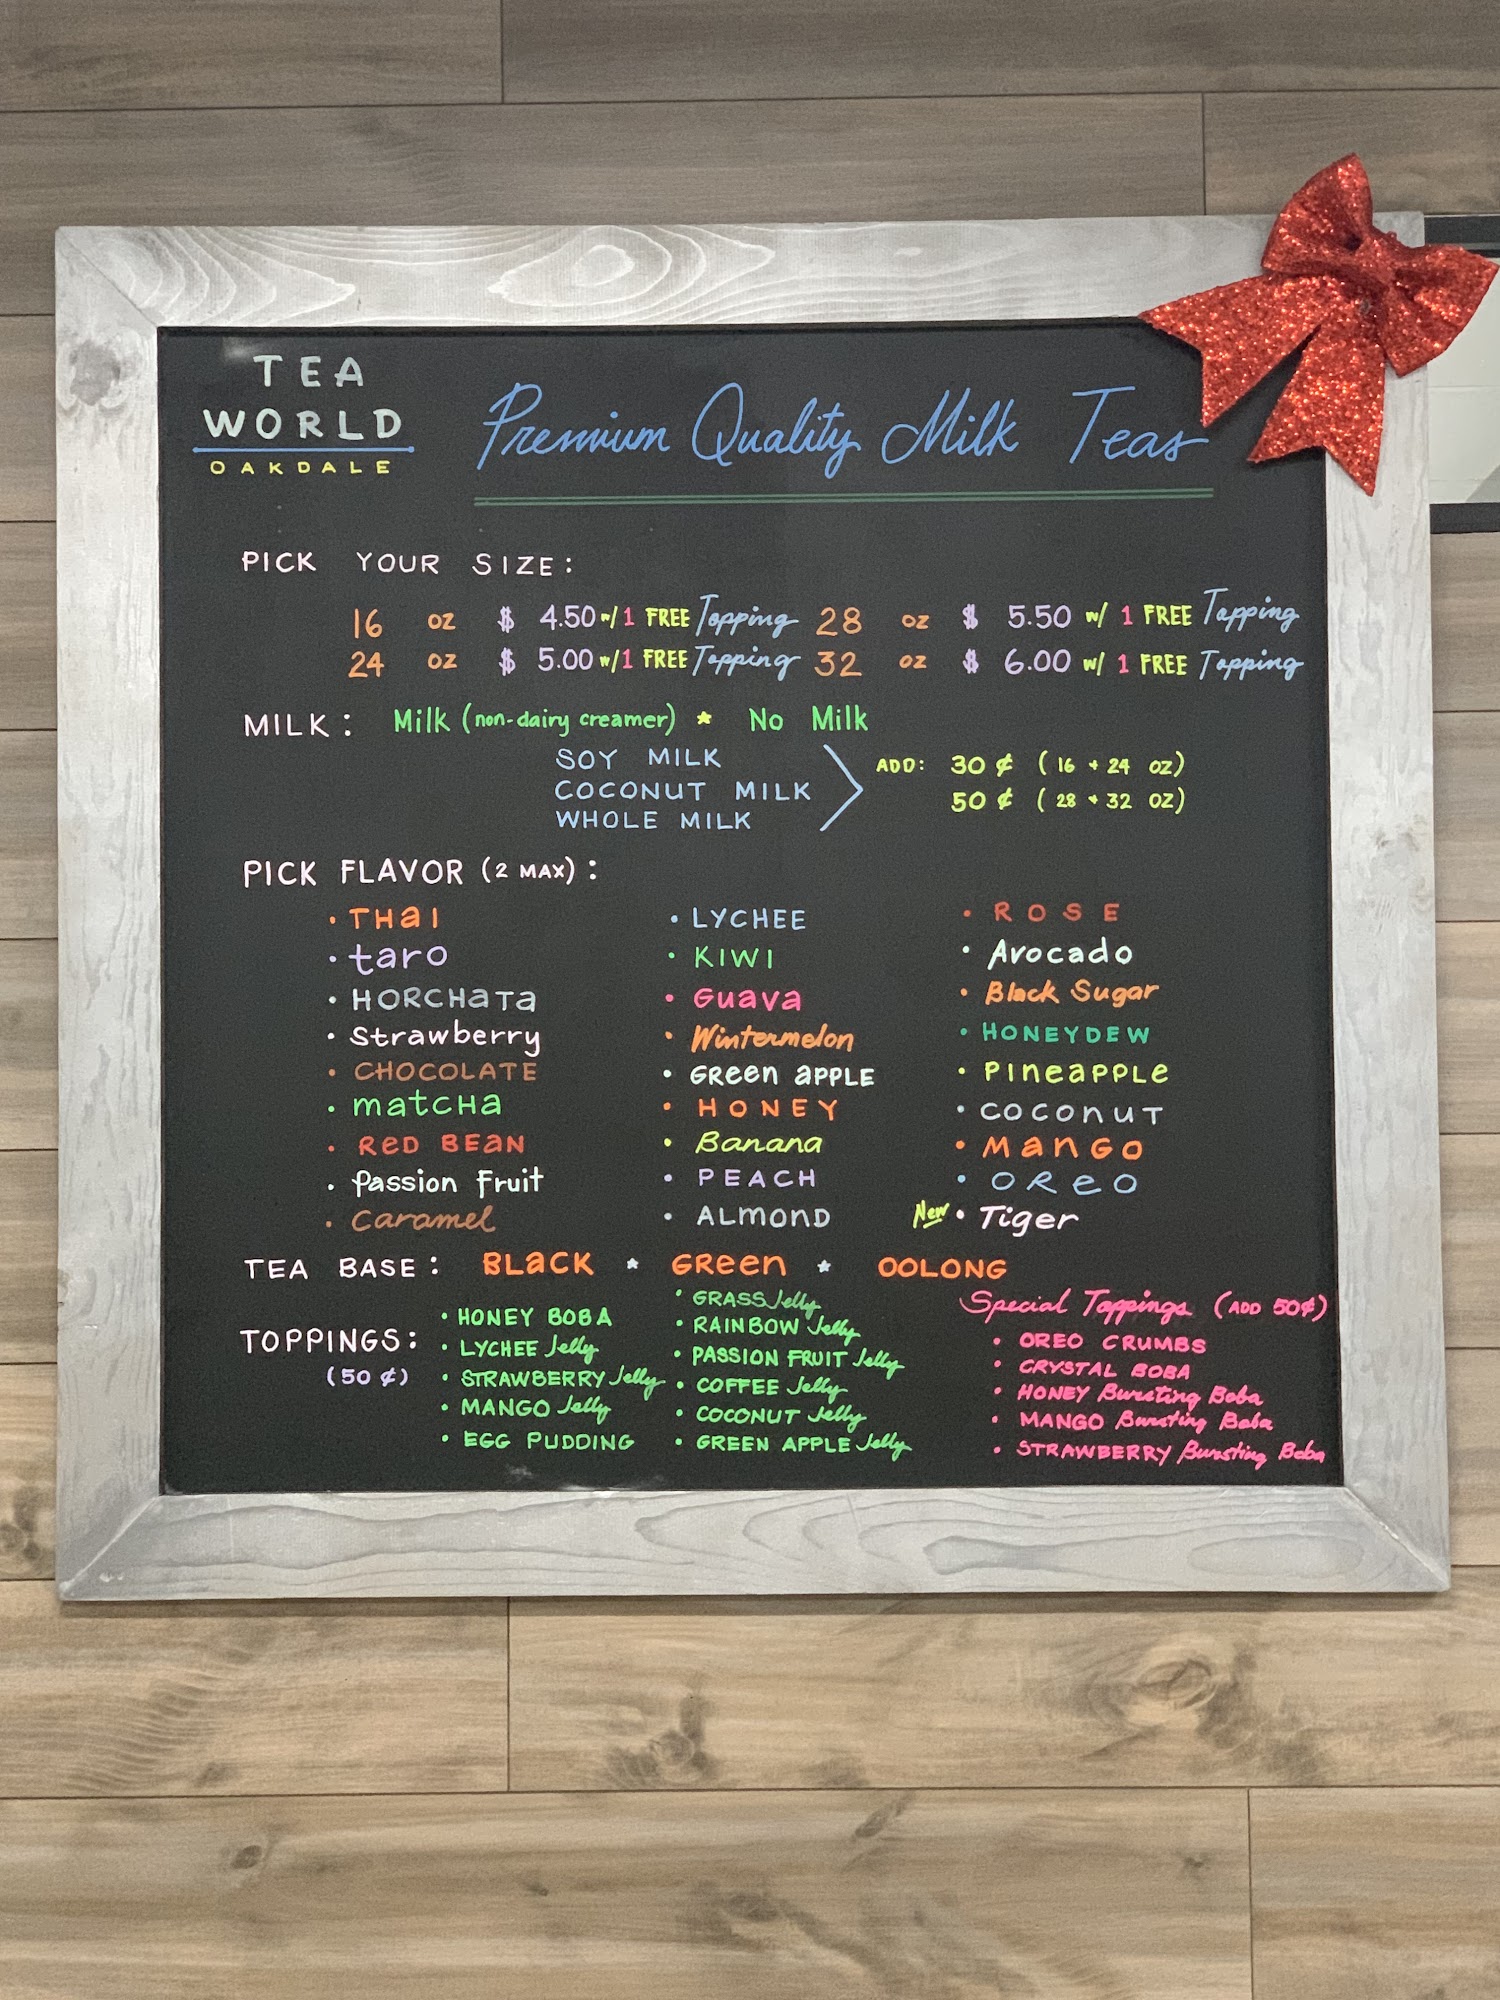 TEA
WORLD
OAKDALE
Premium Quality Milk Teas
PICK YOUR SIZE:
16 oz $ 4.50 w/ 1 FREE Topping 28 oz $ 5.50 w/ 1 FREE Topping
24 oz $ 5.00 w/ 1 FREE Topping 32 oz $ 6.00 w/ 1 FREE Topping
MILK: Milk (non-dairy creamer) * No Milk
SOY MILK
COCONUT MILK
WHOLE MILK
ADD: 30 ¢ (16 + 24 OZ)
50 ¢ (28 + 32 OZ)
PICK FLAVOR (2 MAX):
• THai
• taro
• HORCHaTa
• Strawberry
• CHOCOLATE
• matcHa
• ReD BEaN
• Passion Fruit
• Caramel
• LYCHEE
• KIWI
• Guava
• Wintermelon
• GReen aPPLE
• HONEY
• Banana
• PEACH
• ALMOND
• ROSE
• Avocado
• Black Sugar
• HONEYDEW
• PIneaPPLe
• COCOnuT
• ManGO
• OReO
New • Tiger
TEA BASE: BLacK * GReen * OOLONG
TOPPINGS:
(50 ¢)
• HONEY BOBA
• LYCHEE Jelly
• STRAWBERRY Jelly
• MANGO Jelly
• EGG PUDDING
• GRASS Jelly
• RAINBOW Jelly
• PASSION FRUIT Jelly
• COFFEE Jelly
• COCONUT Jelly
• GREEN APPLE Jelly
Special Toppings (ADD 50¢)
• OREO CRUMBS
• CRYSTAL BOBA
• HONEY Bursting Boba
• MANGO Bursting Boba
• STRAWBERRY Bursting Boba